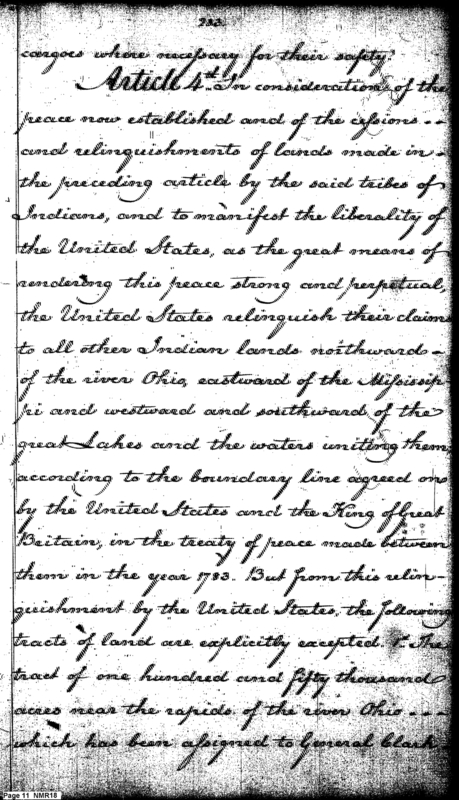 233.
cargoes where necessary for their safety.
Article 4th. In consideration of the
peace now established and of the cessions --
and relinquishments of lands made in -
the preceding article by the said tribes of
Indians, and to manifest the liberality of
the United States, as the great means of
rendering this peace strong and perpetual,
the United States relinquish their claims
to all other Indian lands northward -
of the river Ohio, eastward of the Mississip-
pi and westward and southward of the
great Lakes and the waters uniting them,
according to the boundary line agreed on
by the United States and the King of Great
Britain, in the treaty of peace made between
them in the year 1783. But from this relin-
quishment by the United States, the following
tracts of land are explicitly excepted. 1st. The
tract of one hundred and fifty thousand
acres near the rapids of the river Ohio ---
which has been assigned to General Clark -
Page 11 NMR18